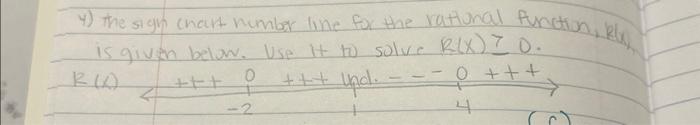 4) the sign chart number line for the rational function, R(x),
is given below. Use it to solve R(x) ≥ 0.
R(x) +++ 0 +++ und. - - - 0 +++
-2 1 4